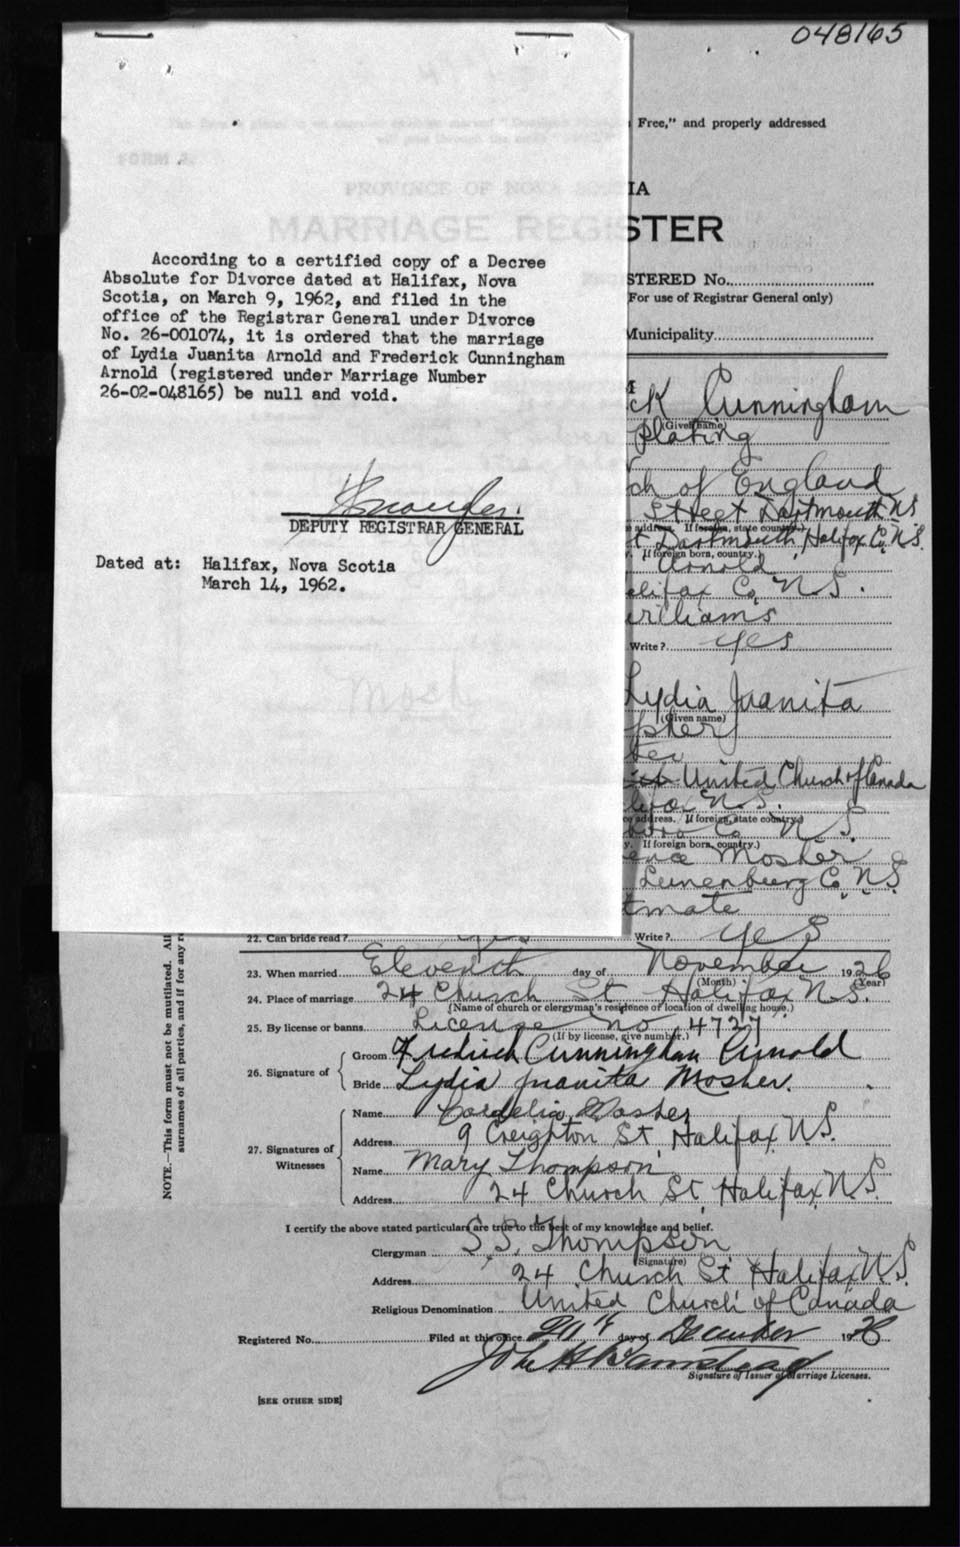 048165
Free," and properly addressed
FORM 2.
PROVINCE OF NOVA SCOTIA
MARRIAGE REGISTER
According to a certified copy of a Decree
Absolute for Divorce dated at Halifax, Nova
Scotia, on March 9, 1962, and filed in the
office of the Registrar General under Divorce
No. 26-001074, it is ordered that the marriage
of Lydia Juanita Arnold and Frederick Cunningham
Arnold (registered under Marriage Number
26-02-048165) be null and void.
DEPUTY REGISTRAR GENERAL
Dated at: Halifax, Nova Scotia
March 14, 1962.
STERED No.
(For use of Registrar General only)
Municipality
ck Cunningham
(Given name)
Plating
ch of England
Street Dartmouth NS
address. If foreign, state country.)
t Dartmouth, Halifax Co. N.S.
If foreign born, country.)
Arnold
alifax Co, N.S.
Williams
Write? yes
Lydia Juanita
(Given name)
pher
ter
United Church of Canada
lifax N.S.
ce address. If foreign, state country.)
boro Co N.S.
y. If foreign born, country.)
ence Mosher
Lunenburg Co, N.S.
tmate
22. Can bride read? yes Write? yes
23. When married Eleventh day of November 1926
(Month) (Year)
24. Place of marriage 24 Church St Halifax N.S.
(Name of church or clergyman's residence or location of dwelling house.)
25. By license or banns License no 4727
(If by license, give number.)
26. Signature of
Groom Fredrick Cunningham Arnold
Bride Lydia Juanita Mosher.
27. Signatures of Witnesses
Name Cordelia Mosher
Address 9 Creighton St Halifax N.S.
Name Mary Thompson
Address 24 Church St, Halifax, N.S.
I certify the above stated particulars are true to the best of my knowledge and belief.
Clergyman S.S. Thompson
(Signature)
Address 24 Church St Halifax N.S.
Religious Denomination United Church of Canada
Registered No. Filed at this office day of December 1926
Signature of Issuer of Marriage Licenses.
[SEE OTHER SIDE]
NOTE.—This form must not be mutilated. All
surnames of all parties, and if for any r
Mosh